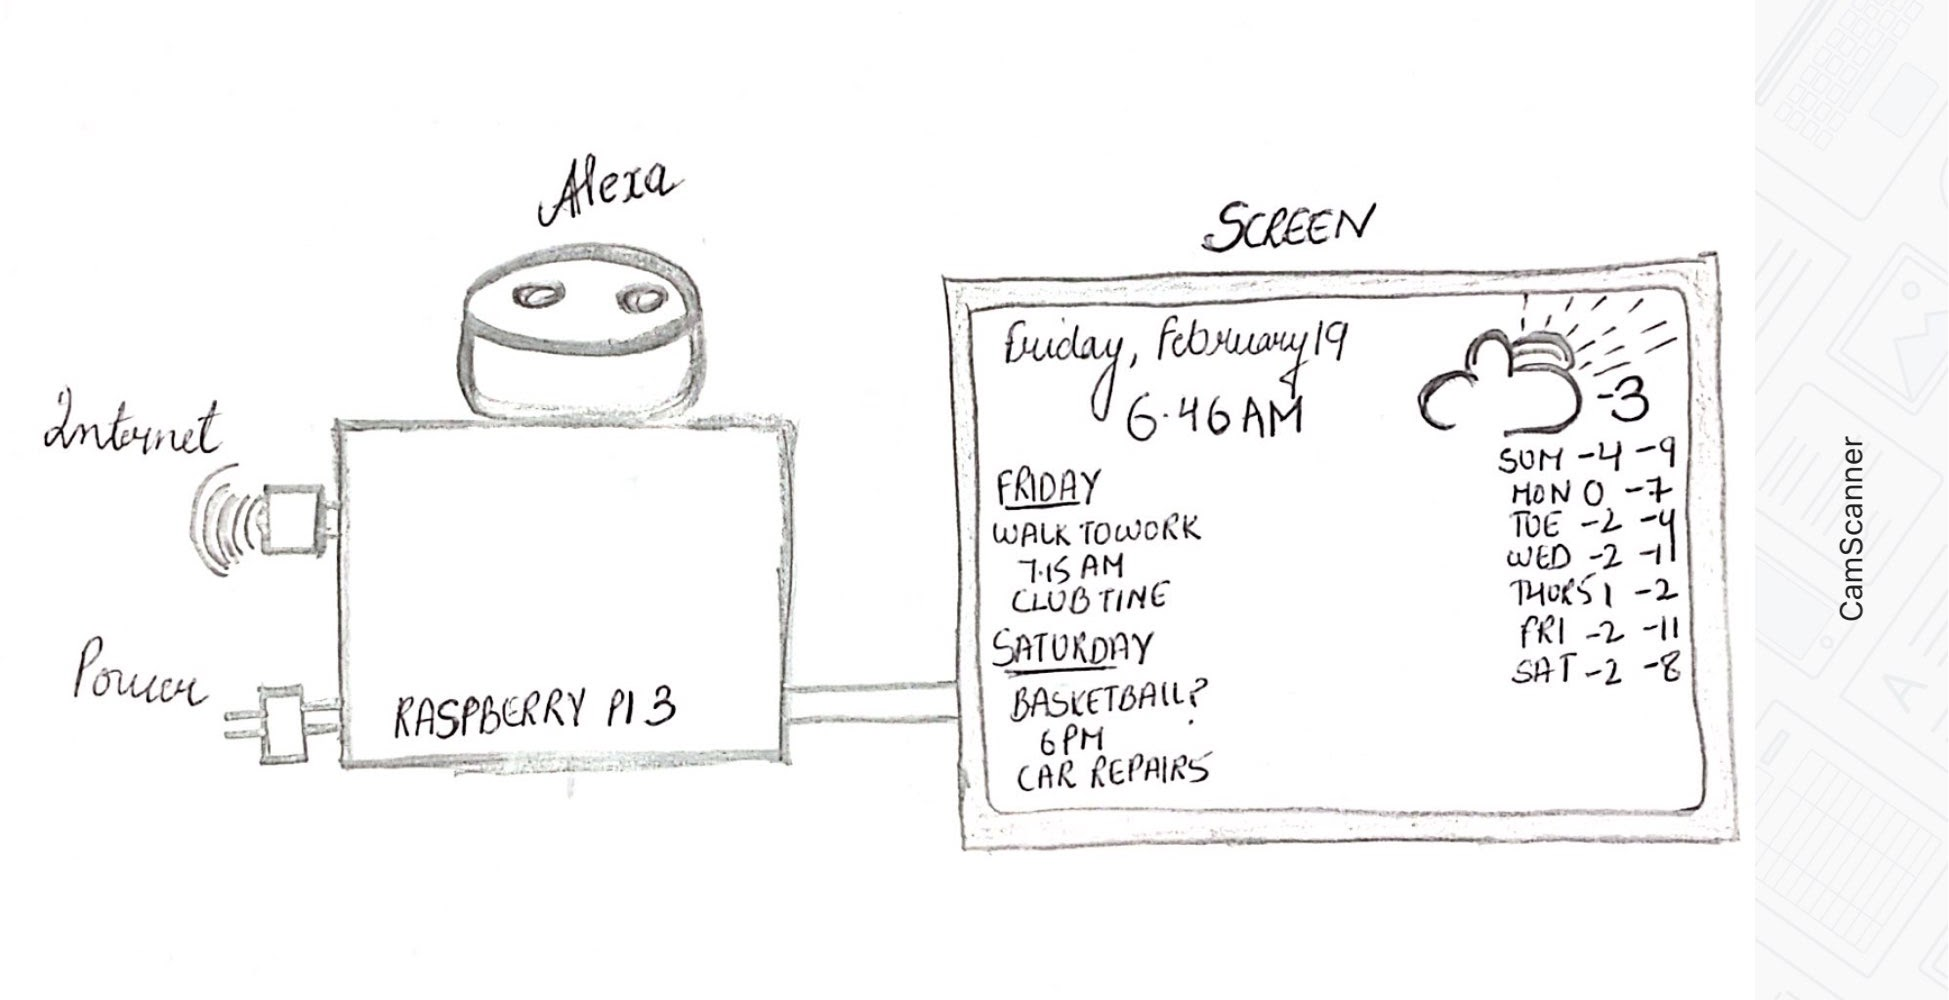 Alexa
SCREEN
Internet
Power
RASPBERRY PI 3
Friday, February 19
6.46 AM
-3
FRIDAY
WALK TO WORK
7.15 AM
CLUB TINE
SATURDAY
BASKETBALL?
6 PM
CAR REPAIRS
SUN -4 -9
MON 0 -7
TUE -2 -4
WED -2 -11
THURS 1 -2
FRI -2 -11
SAT -2 -8
CamScanner